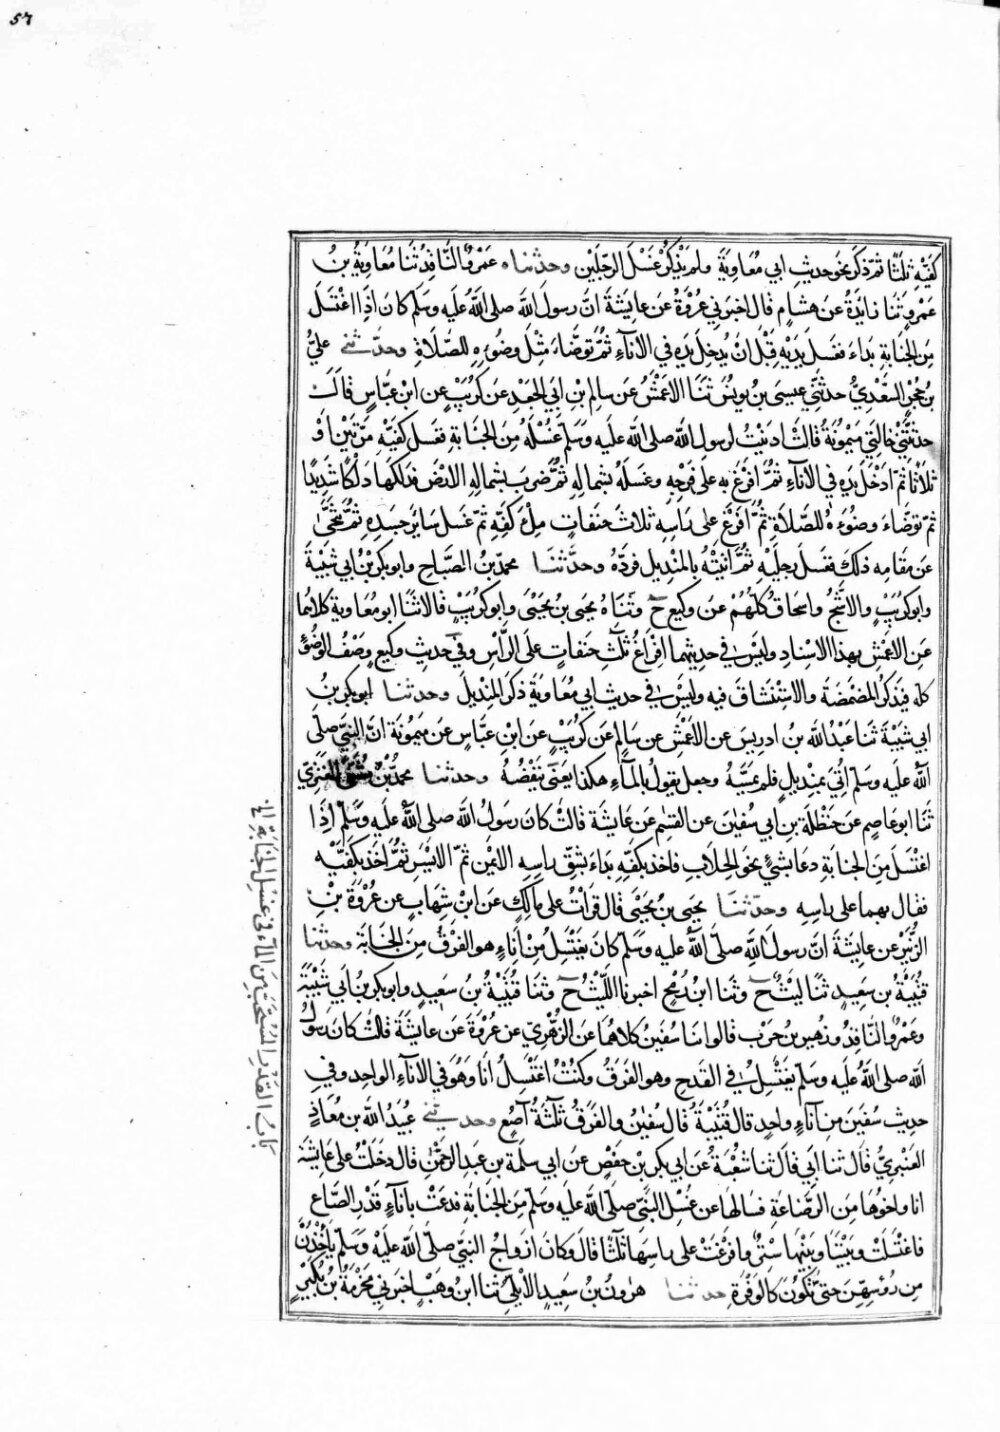 ٥٦
كفيه ثلثا ثم ذكر نحو حديث ابي معاوية ولم يذكر غسل الرجلين وحدثناه عمرو الناقد ثنا معاوية بن
عمرو ثنا زايدة عن هشام قال اخبرني عروة عن عايشة ان رسول الله صلى الله عليه وسلم كان اذا اغتسل
من الجنابة بداء فغسل يديه قبل ان يدخل يده في الاناء ثم توضاء مثل وضوءه للصلاة وحدثني علي
بن حجر السعدي حدثني عيسى بن يونس ثنا الاعمش عن سالم بن ابي الجعد عن كريب عن ابن عباس قالت
حدثتني خالتي ميمونة قالت ادنيت لرسول الله صلى الله عليه وسلم غسله من الجنابة فغسل كفيه مرتين او
ثلاثا ثم ادخل يده في الاناء ثم افرغ به على فرجه وغسله بشماله ثم ضرب بشماله الارض فدلكها دلكا شديدا
ثم توضاء وضوءه للصلاة ثم افرغ على راسه ثلاث حفنات ملء كفه ثم غسل ساير جسده ثم تنحى
عن مقامه ذلك فغسل رجليه ثم اتيته بالمنديل فرده وحدثنا محمد بن الصباح وابو بكر بن ابي شيبة
وابو كريب والاشج واسحاق كلهم عن وكيع ح وثناه يحيى بن يحيى وابو كريب قالا ثنا ابو معاوية كلاهما
عن الاعمش بهذا الاسناد وليس في حديثهما افراغ ثلث حفنات على الراس وفي حديث وكيع وصف الوضوء
كله فيذكر المضمضة والاستنشاق فيه وليس في حديث ابي معاوية ذكر المنديل وحدثنا ابو بكر بن
ابي شيبة ثنا عبد الله بن ادريس عن الاعمش عن سالم عن كريب عن ابن عباس عن ميمونة ان النبي صلى
الله عليه وسلم اتي بمنديل فلم يمسه وجعل يقول بالماء هكذا يعني ينفضه وحدثنا محمد بن مثنى العنزي
ثنا ابو عاصم عن حنظلة بن ابي سفيان عن القسم عن عايشة قالت كان رسول الله صلى الله عليه وسلم اذا
اغتسل من الجنابة دعا بشئ نحو الحلاب فاخذ بكفه بداء بشق راسه الايمن ثم الايسر ثم اخذ بكفيه
فقال بهما على راسه وحدثنا يحيى بن يحيى قال قرات على مالك عن ابن شهاب عن عروة بن
الزبير عن عايشة ان رسول الله صلى الله عليه وسلم كان يغتسل من اناء هو الفرق من الجنابة وحدثنا
قتيبة بن سعيد ثنا ليث ح وثنا ابن رمح اخبرنا الليث ح وثنا قتيبة بن سعيد وابو بكر بن ابي شيبة
وعمرو الناقد وزهير بن حرب قالوا ثنا سفين كلاهما عن الزهري عن عروة عن عايشة قالت كان رسول
الله صلى الله عليه وسلم يغتسل في القدح وهو الفرق وكنت اغتسل انا وهو في الاناء الواحد وفي
حديث سفين من اناء واحد قال قتيبة قال سفين والفرق ثلثة آصع وحدثني عبيد الله بن معاذ
العنبري قال ثنا ابي قال ثنا شعبة عن ابي بكر بن حفص عن ابي سلمة بن عبد الرحمن قال دخلت على عايشة
انا واخوها من الرضاعة فسالها عن غسل النبي صلى الله عليه وسلم من الجنابة فدعت باناء قدر الصاع
فاغتسلت وبيننا وبينها ستر وافرغت على راسها ثلثا قال وكان ازواج النبي صلى الله عليه وسلم ياخذن
من رؤسهن حتى تكون كالوفرة حدثنا هرون بن سعيد الايلي ثنا ابن وهب اخبرني مخرمة بن بكير
باب القدر المستحب من الماء في غسل الجنابة الخ